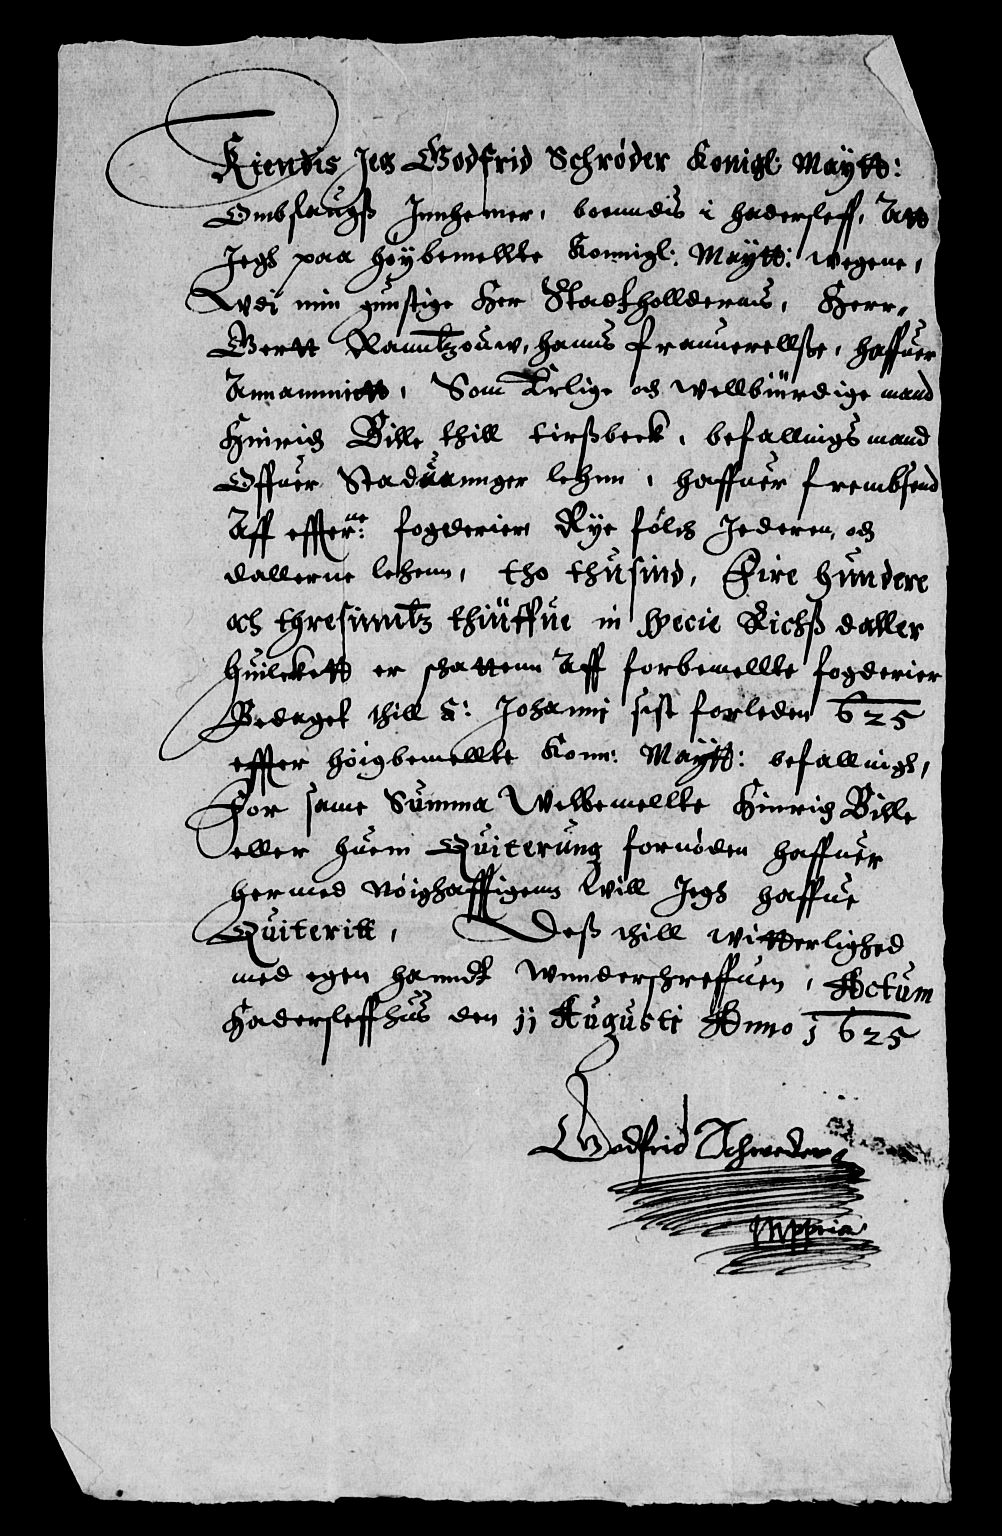 Kiendis Jeg Godfrid Schrøder Konigl: Maytt:
Ombslaugß Innhemer, boenndis i Hadersleff, Att
Jegh paa høybemellte Konnigl: Maytt: wegene,
Wdi min günstige Her Stadthollderens, Herr
Gertt Ranntzouw, hanns frauuerellße, haffuer
Annammett, Som Erlige och wellbiürdige mand
Hinrich Bille thill tirßbeck, befallings mand
Offuer Staduannger lehnn, haffuer frembsend
Aff effter:ne fogderier Rye fölch Jederen, och
dallerne lehenn, tho thusind, Fire hundere
och thresinntz thiüffue in specie Richß daller
huilckett er schattenn Aff forbemellte fogderier
Bedaget thill S: Johanni sist forleden 625
effter høigbemellte Konn: Maytt: befallingh,
For same Summa Welbemellte Hinrich Bille
eller huem Quiterung fornøden haffuer
hermed nøighafftigenn will Jegh haffue
Quiteritt, Deß thill witterlighed
med egen hanndt wnnderschreffuen, Actum
Hadersleffhus den 11 Augusti Anno 1625
Godfrid Schrøder
Mppria